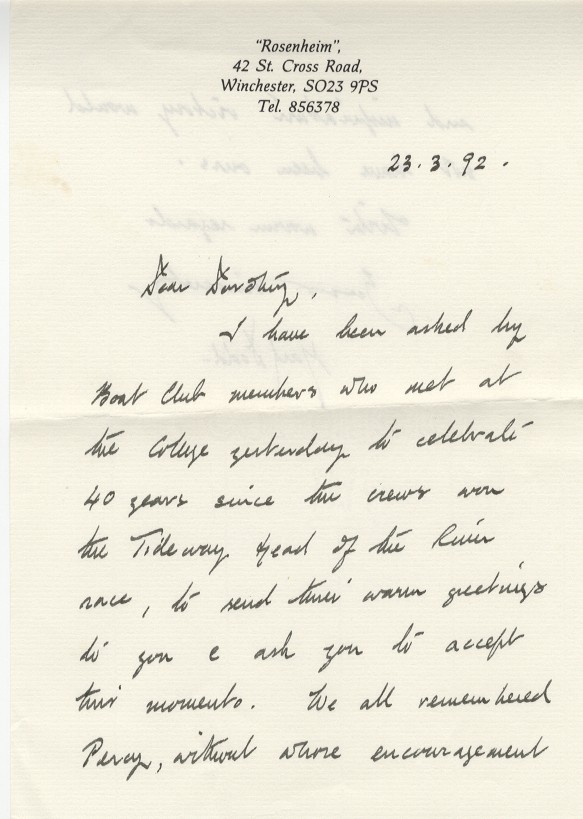 "Rosenheim",
42 St. Cross Road,
Winchester, SO23 9PS
Tel. 856378
23.3.92.
Dear Dorothy,
I have been asked by
Boat Club members who met at
the College yesterday to celebrate
40 years since the crews won
the Tideway Head of the River
race, to send their warm greetings
to you & ask you to accept
their momento. We all remembered
Percy, without whose encouragement